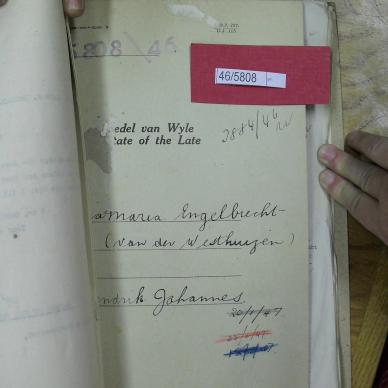 5808/46
46/5808
2884/46
edel van Wyle
tate of the Late
a Maria Engelbrecht
(van der Westhuizen)
ndrik Johannes.
20/1/47.